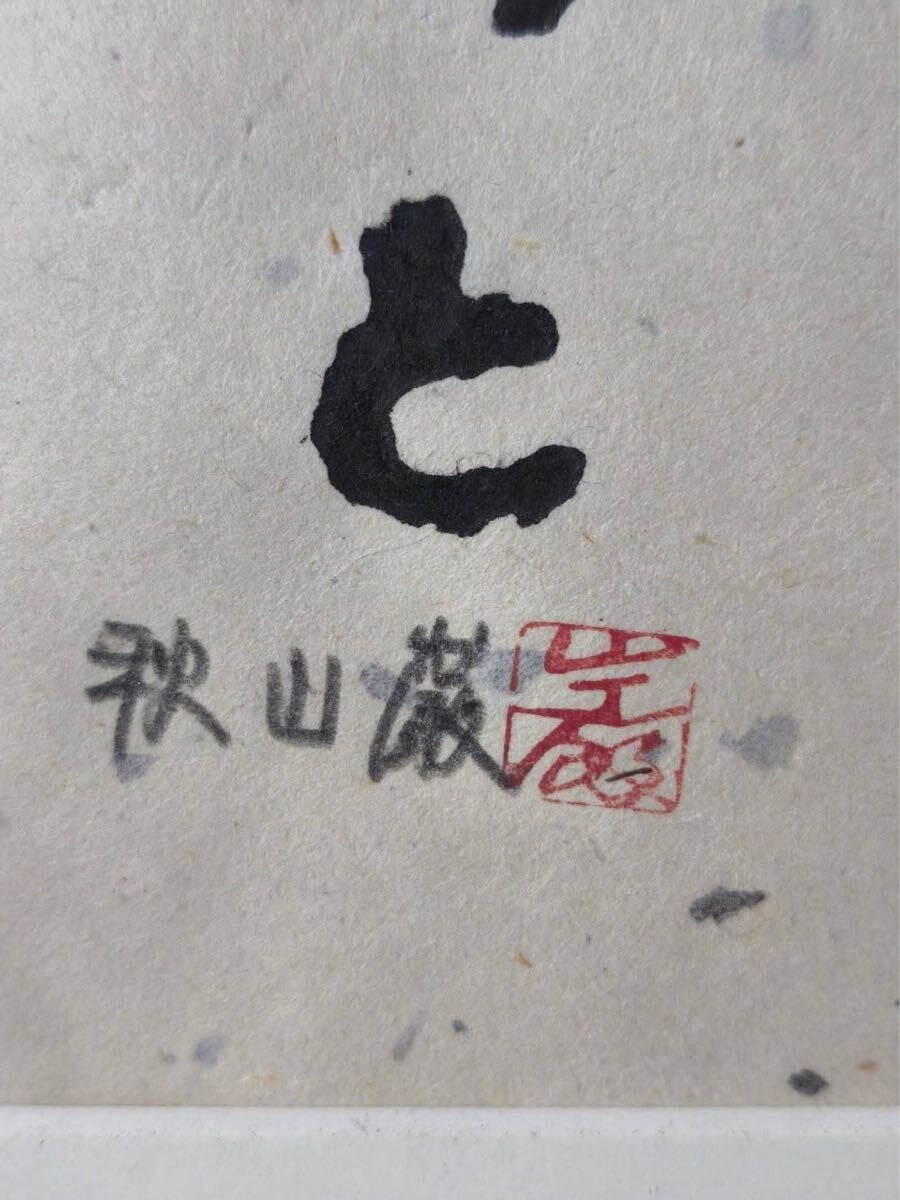 と
秋山巌